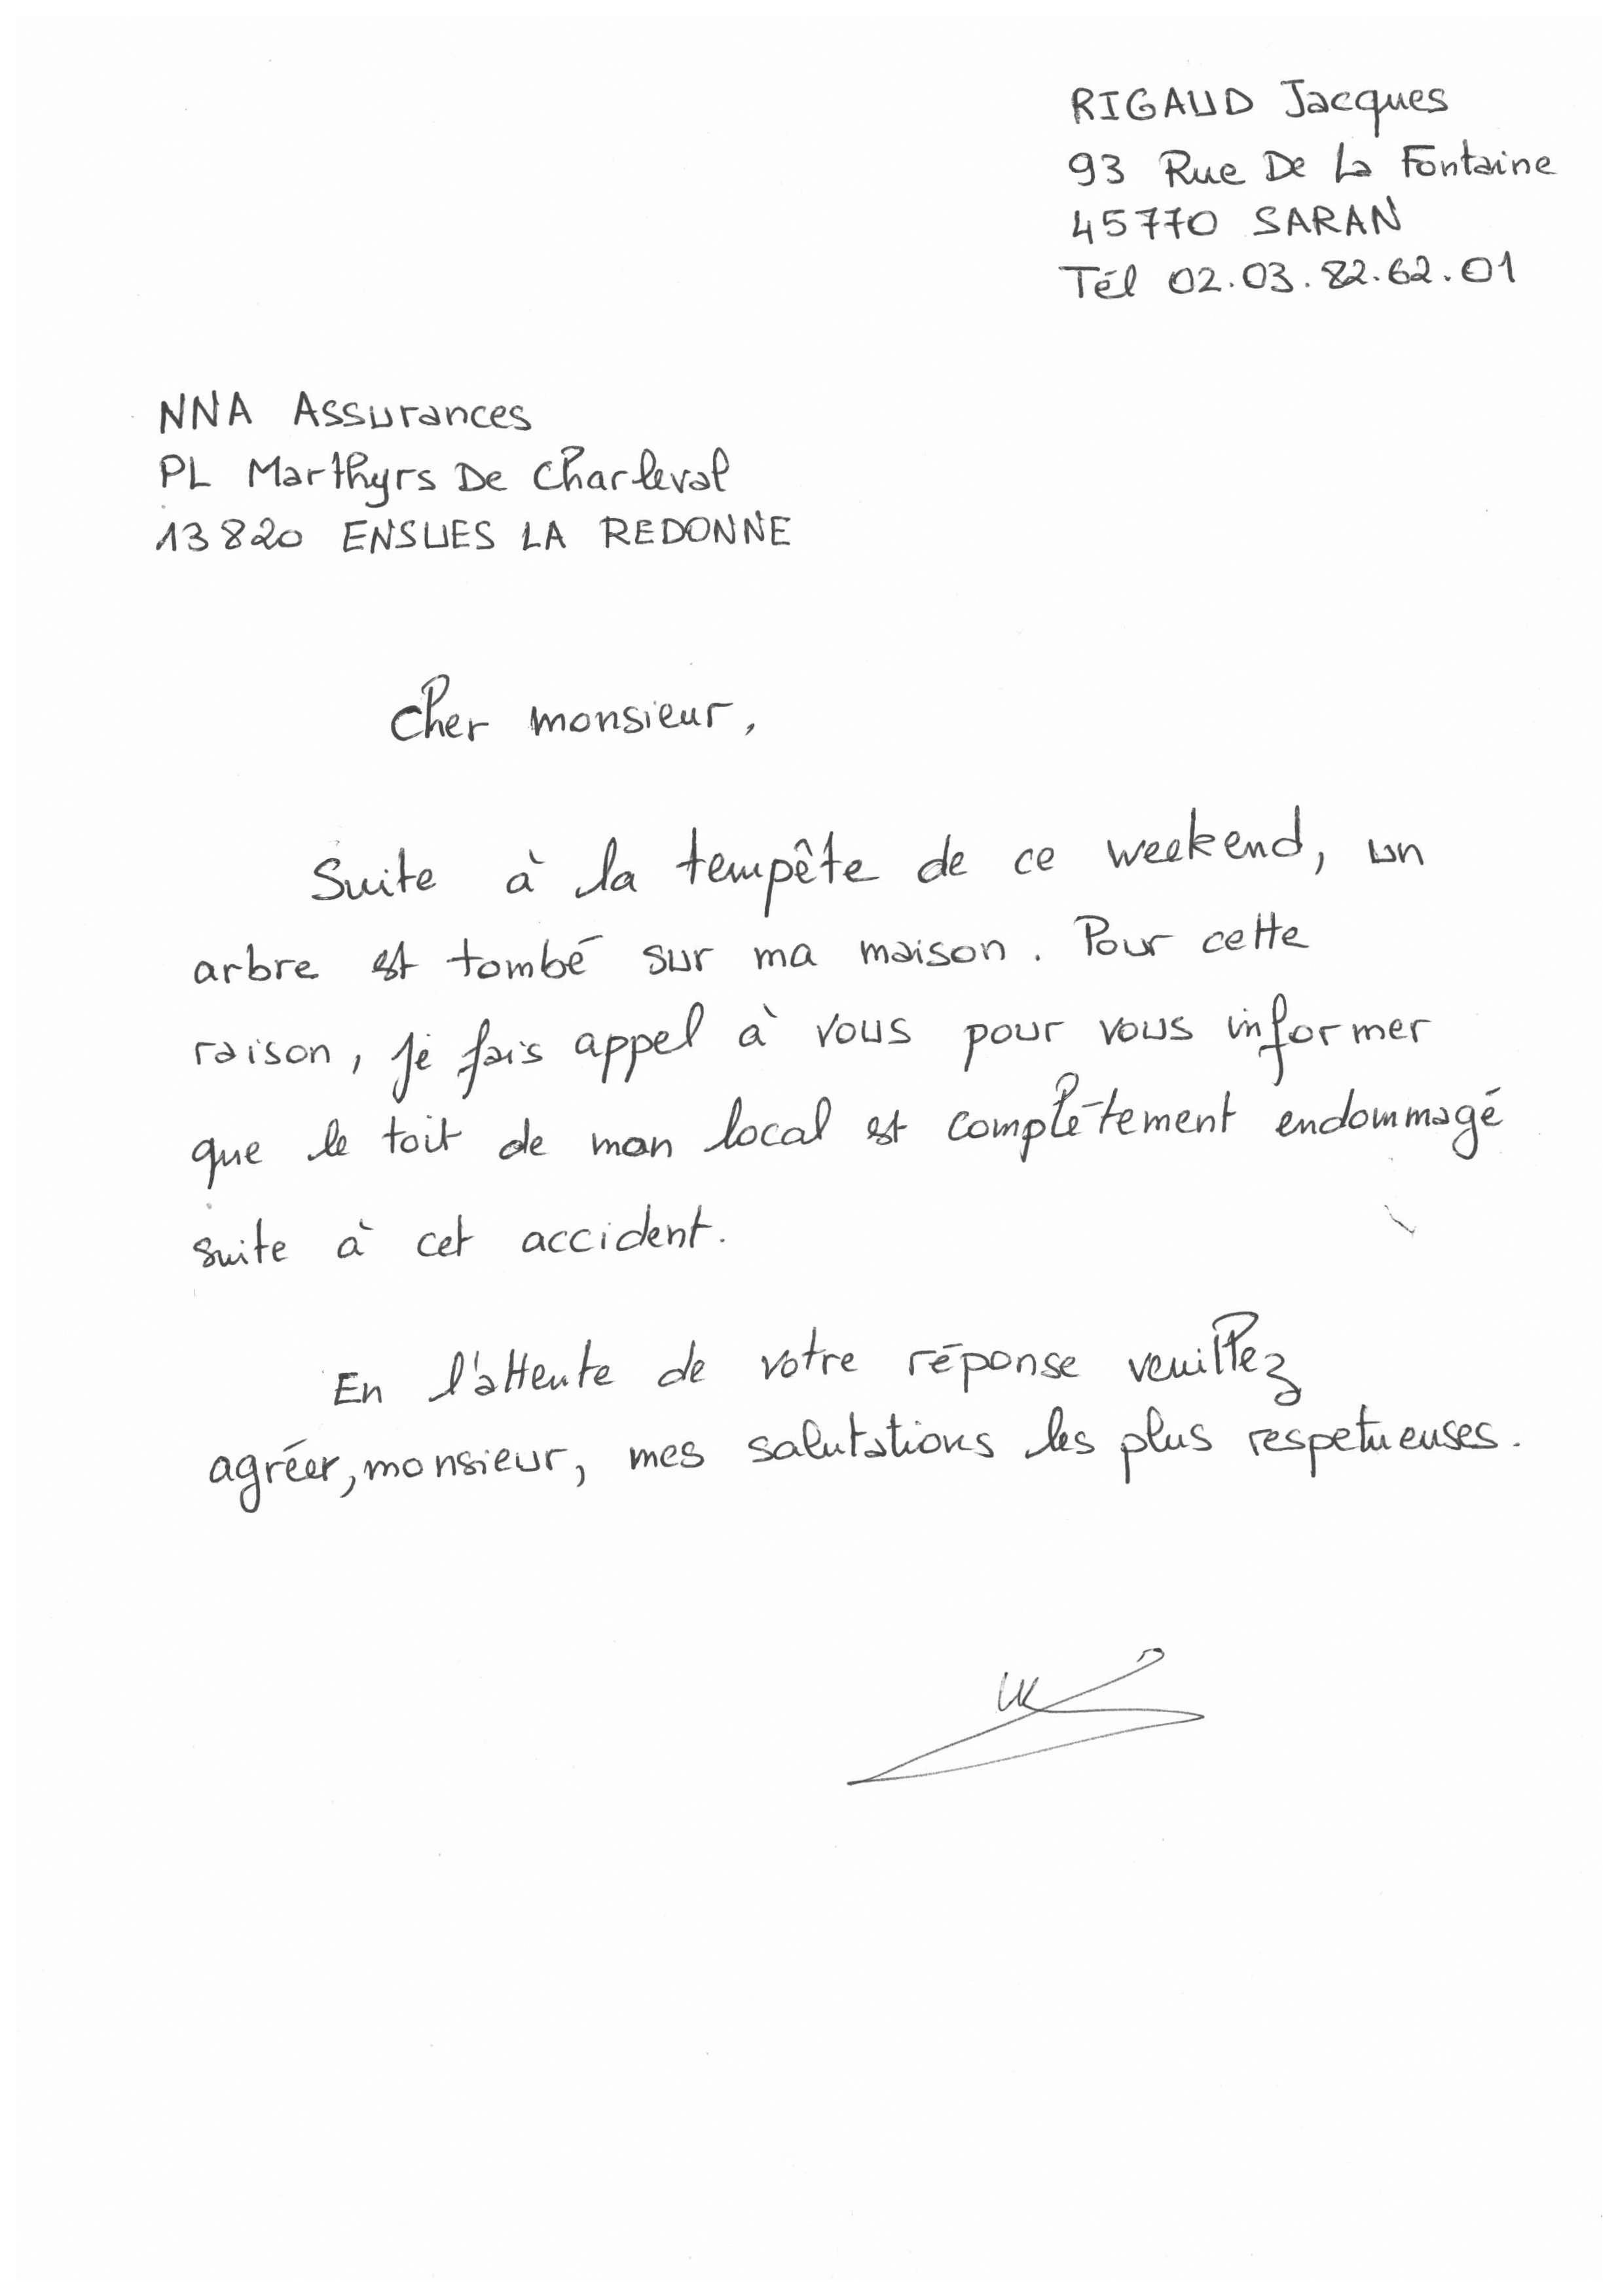 RIGAUD Jacques
93 Rue De La Fontaine
45770 SARAN
Tél 02.03.82.62.01
NNA Assurances
PL Marthyrs De Charleval
13820 ENSUES LA REDONNE
Cher monsieur,
Suite à la tempête de ce weekend, un
arbre est tombé sur ma maison. Pour cette
raison, je fais appel à vous pour vous informer
que le toit de mon local est complètement endommagé
suite à cet accident.
En l'attente de votre réponse veuillez
agréer, monsieur, mes salutations les plus respetueuses.